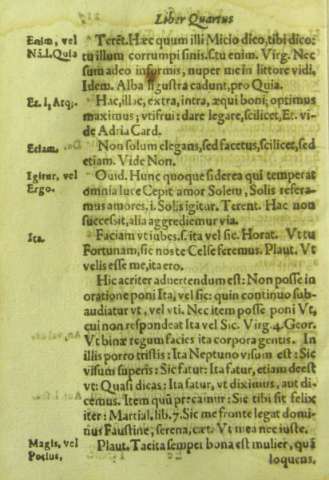 Liber Quartus
Enim, vel
Nă. l. Quia
Terĕt. Hæc quum illi Micio dico, tibi dico:
tu illum corrumpi sinis. Etu enim. Virg. Nec
sum adeo informis, nuper me in littore vidi.
Idem. Alba ligustra cadunt, pro Quia.
Et. l, Atq;.
Hac, illac, extra, intra, æqui boni; optimus
maximus; vti frui: dare legare, scilicet, Et. vi-
de Adria Card.
Etiam.
Non solum elegans, sed facetus, scilicet, sed
etiam. Vide Non.
Igitur, vel
Ergo.
Ouid. Hunc quoque sidera qui temperat
omnia luce Cepit amor Solem, Solis refera-
mus amores. i. Solis igitur. Terent. Hac non
successit, alia aggrediemur via.
Ita.
Faciam vt iubes. s. ita vel sic. Horat. Vt tu
Fortunam, sic nos te Celse feremus. Plaut. Vt
velis esse me, ita ero.
Hic acriter aduertendum est: Non posse in
oratione poni Ita, vel sic: quin continuo sub-
audiatur vt, vel vti. Nec item posse poni Vt,
cui non respondeat Ita vel Sic. Virg. 4. Geor.
Vt binæ regum facies ita corpora gentis. In
illis porro tristis: Ita Neptuno visum est: Sic
visum superis: Sic fatur: Ita fatur, etiam deest
vt: Quasi dicas: Ita fatur, vt diximus, aut di-
cemus. Item quũ precamur: Sic tibi sit felix
iter: Martial. lib. 7. Sic me fronte legat domi-
tius Faustine, serena, cæt. Vt mea nec iuste.
Magis, vel
Potius,
Plaut. Tacita semper bona est mulier, quã
loquens.